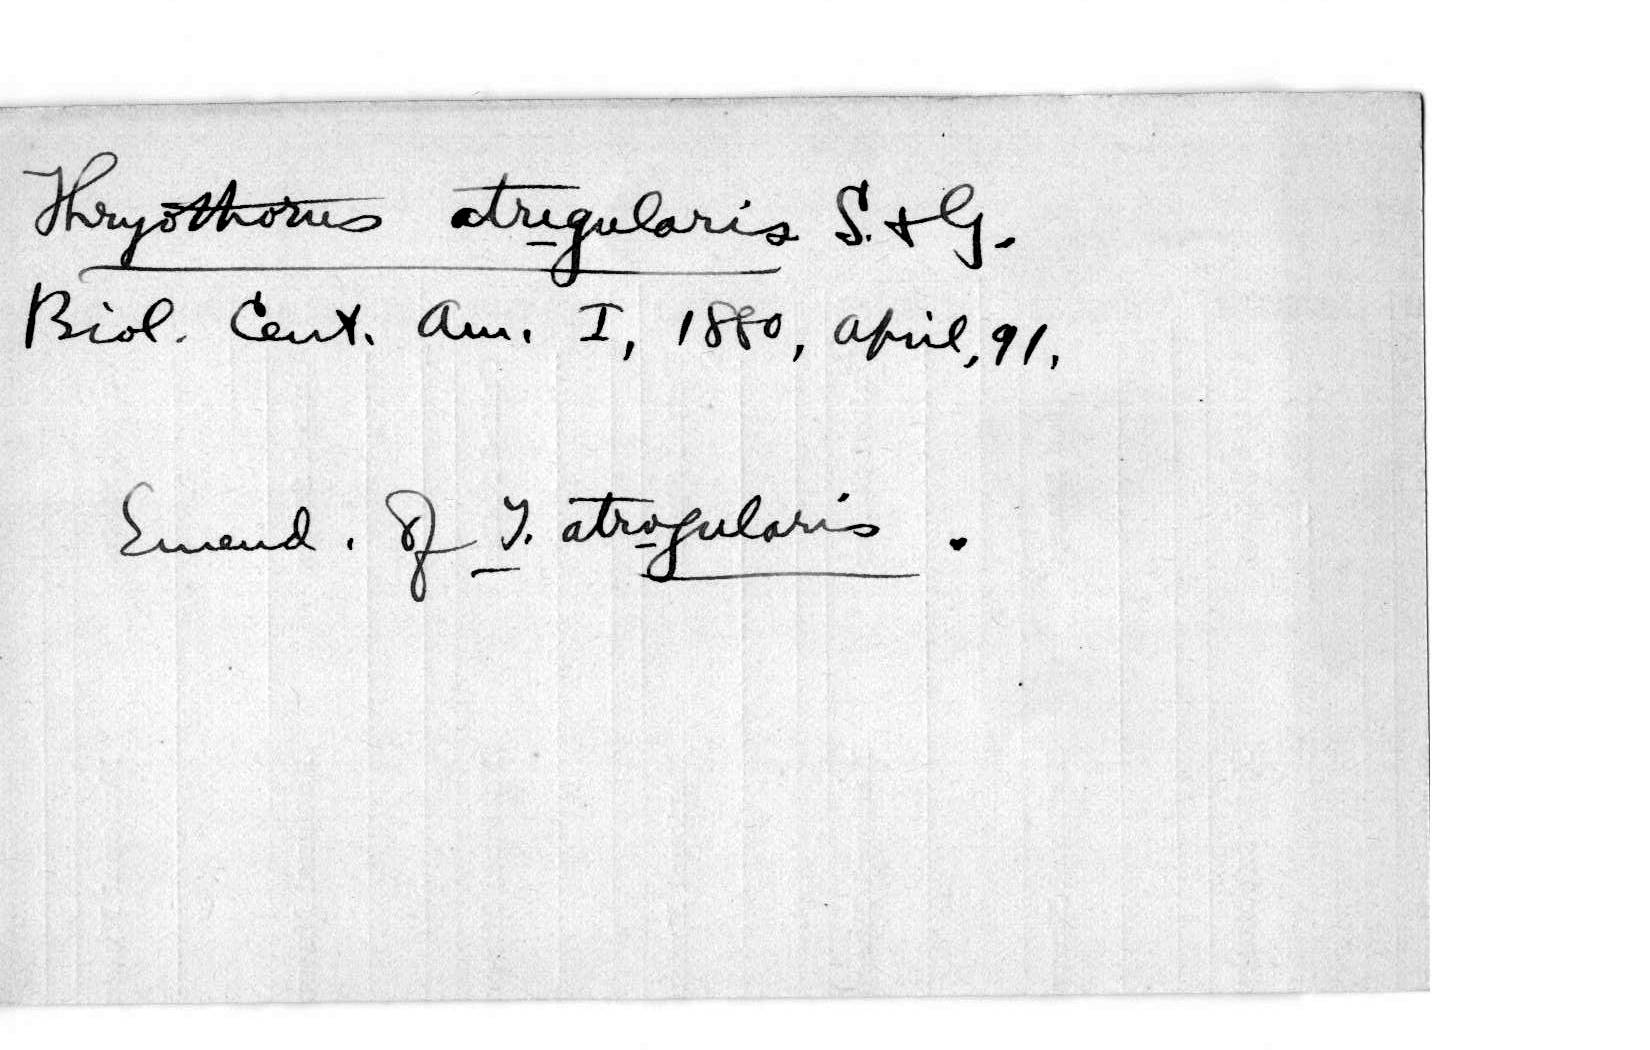 Thryothorus atrigularis S. & G.
Biol. Cent. Am. I, 1880, April, 91.
Emend. of T. atrogularis.